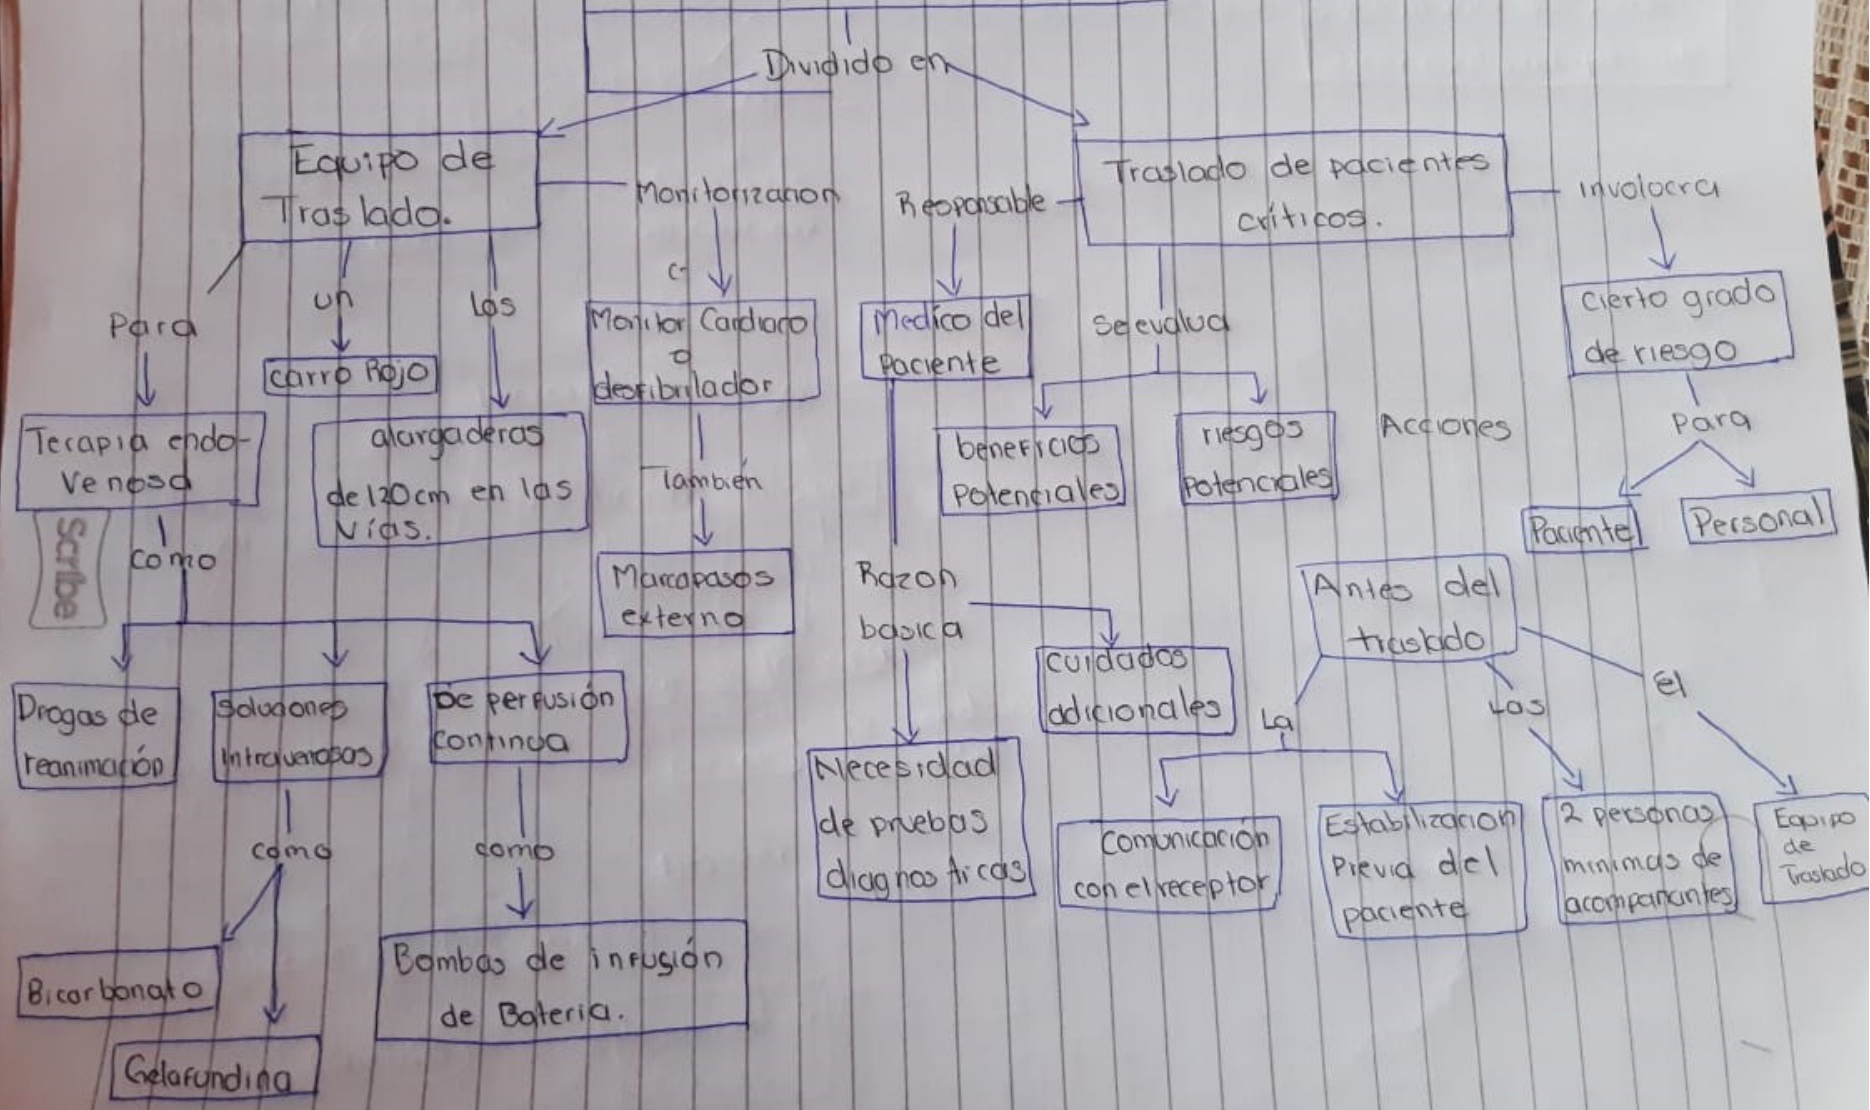 Dividido en
Equipo de
Traslado.
Monitorizacion
Responsable
Traslado de pacientes
críticos.
involocra
Para
un
Las
Monitor Cardiaco
o
desfibrilador
Medico del
Paciente
Se evalua
Cierto grado
de riesgo
carro Rojo
Terapia endo-
Venosa
alargaderas
de 120cm en las
Vías.
También
beneficios
Potenciales
riesgos
Potenciales
Acciones
Para
Paciente
Personal
Scribe
como
Marcapasos
externo
Razon
basica
Antes del
traslado
Drogas de
reanimación
Soluciones
intravenosas
De perfusión
continua
cuidados
adicionales
La
Las
El
Necesidad
de pruebas
diagnosticas
comunicación
con el receptor
Estabilizacion
Previa del
paciente
2 personas
minimas de
acompañantes
Equipo
de
Traslado
como
como
Bicarbonato
Gelafundina
Bombas de infusión
de Bateria.